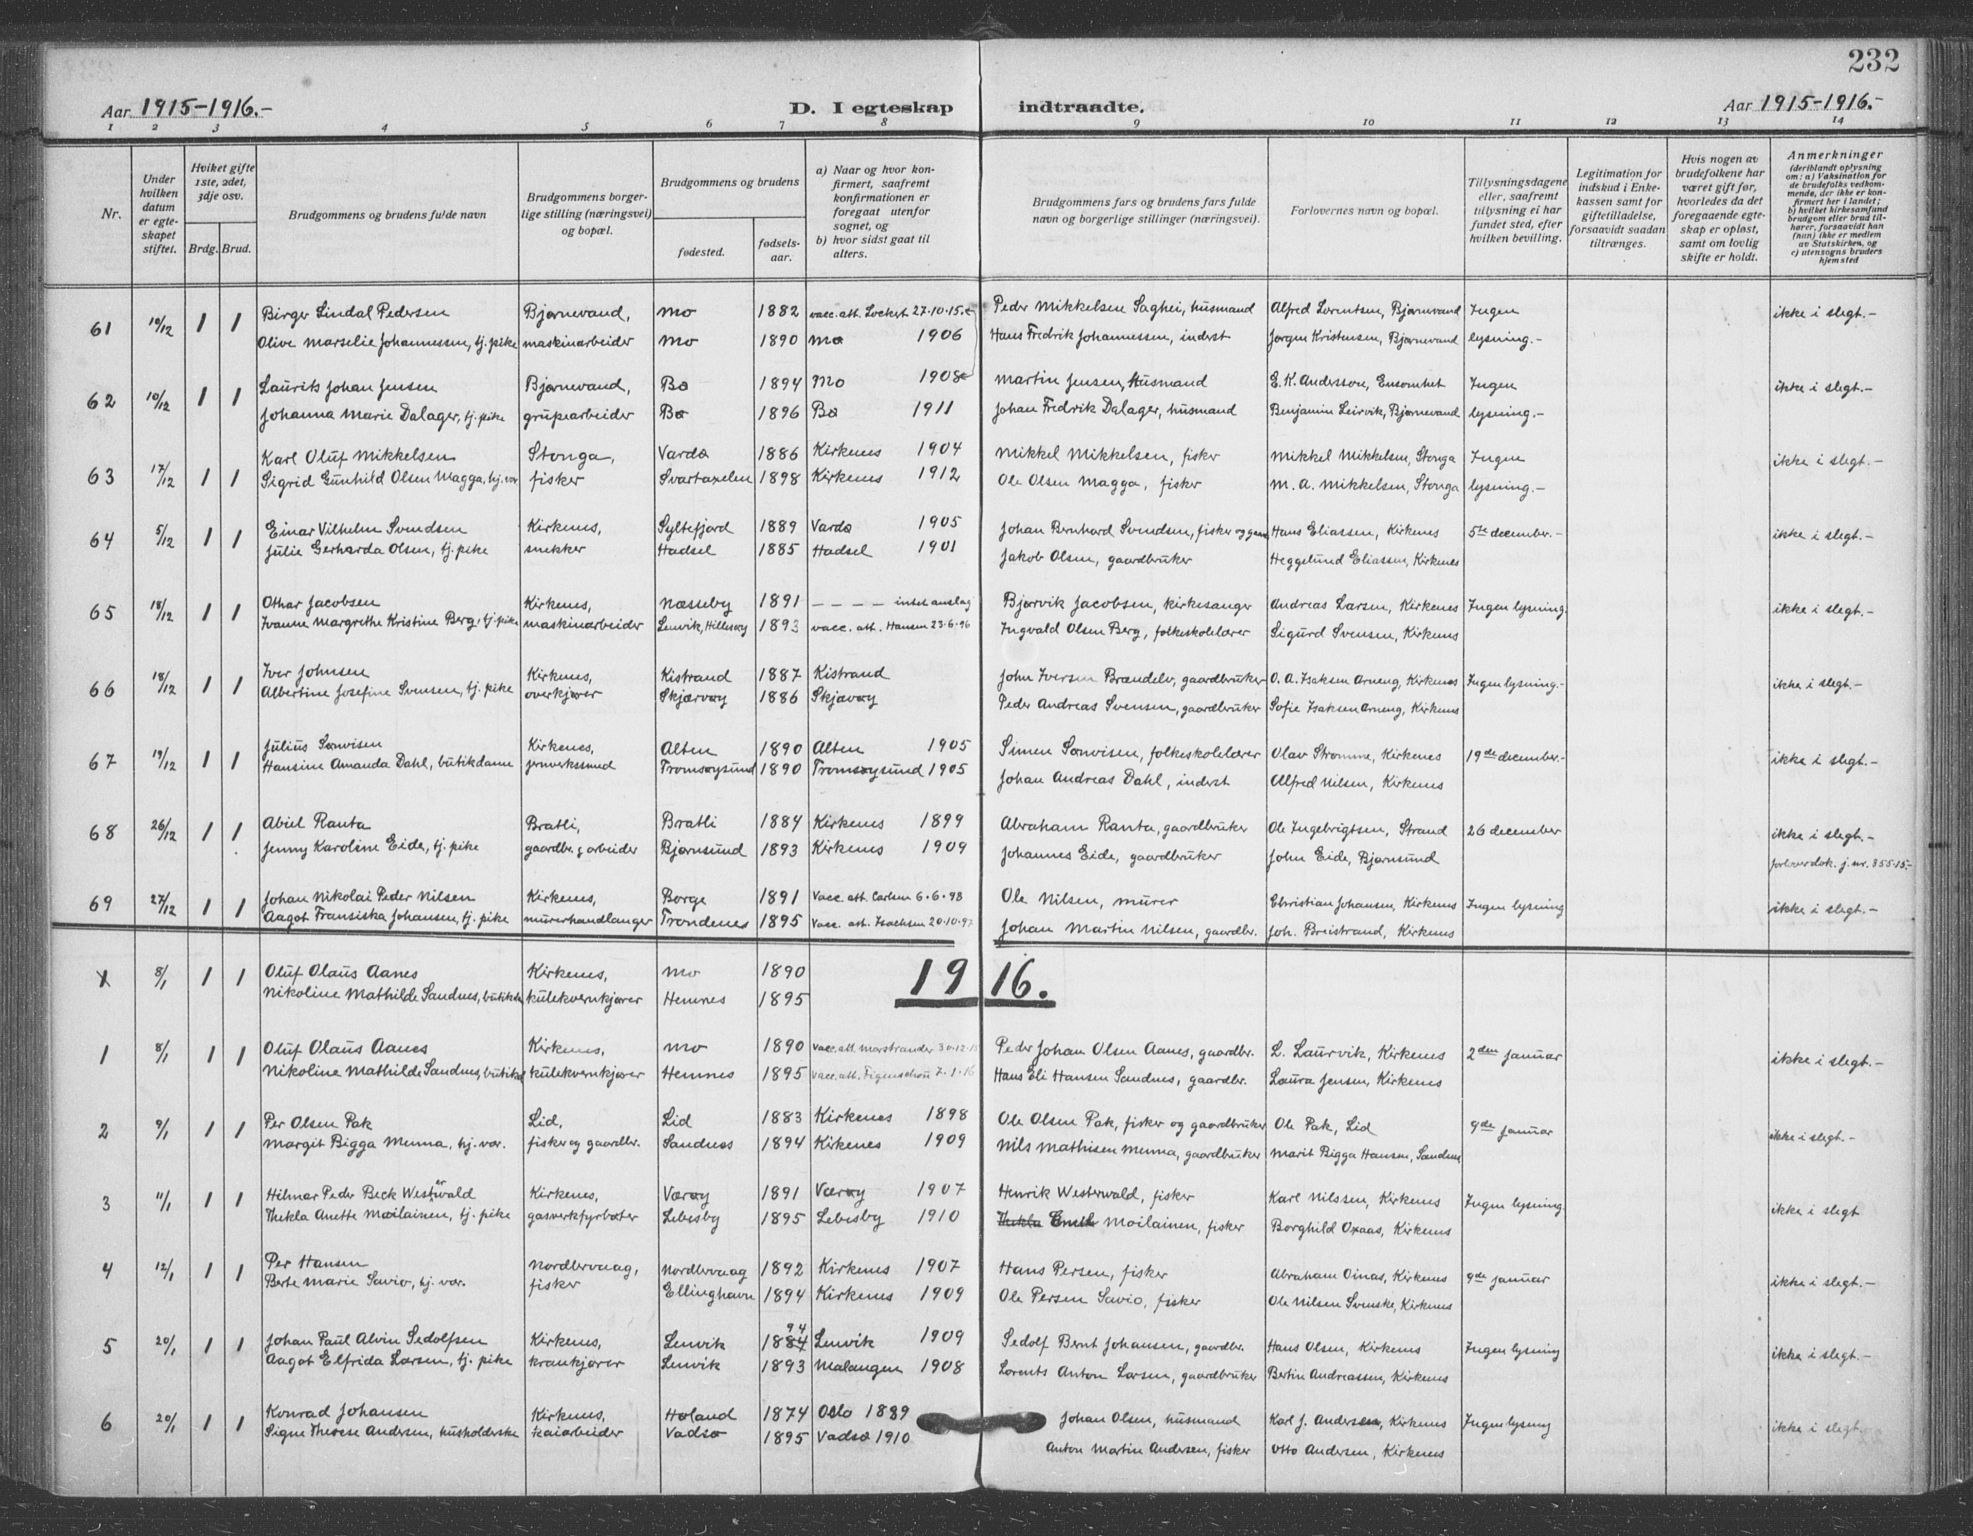 232
Aar 1915-1916.-
D. I egteskap indtraadte.
Aar 1915-1916.-
1 2 3 4 5 6 7 8 9 10 11 12 13 14
Nr.
Under hvilken datum er egteskapet stiftet.
Hviket gifte 1ste, 2det, 3dje osv.
Brdg. Brud.
Brudgommens og brudens fulde navn
Brudgommens borgerlige stilling (næringsvei) og bopæl.
Brudgommens og brudens
fødested.
fødselsaar.
a) Naar og hvor konfirmert, saafremt konfirmationen er foregaat utenfor sognet, og
b) hvor sidst gaat til alters.
Brudgommens fars og brudens fars fulde navn og borgerlige stillinger (næringsvei).
Forlovernes navn og bopæl.
Tillysningsdagene eller, saafremt tillysning ei har fundet sted, efter hvilken bevilling.
Legitimation for indskud i Enkekassen samt for giftetilladelse, forsaavidt saadan tiltrænges.
Hvis nogen av brudefolkene har været gift før, hvorledes da det foregaaende egteskap er opløst, samt om lovlig skifte er holdt.
Anmerkninger
(deriblandt oplysning om: a) Vaksination for de brudefolks vedkommende, der ikke er konfirmert her i landet; b) hvilket kirkesamfund brudgom eller brud tilhører, forsaavidt han (hun) ikke er medlem av Statskirken, og c) utensogns bruders hjemsted
61 10/12 1 1 Birger Lindal Pedersen Bjørnevand, Mo 1882 vacc. att. Lockert 27.10.15. Peder Mikkelsen Saghei, husmand Alfred Lorentsen, Bjørnevand Ingen ikke i slegt.-
Olive Marselie Johannessen, tj. pike maskinarbeider Mo 1890 Mo 1906 Hans Fredrik Johannessen, inderst Jørgen Kristensen, Bjørnevand lysning.-
62 10/12 1 1 Laurits Johan Jensen Bjørnevand, Bø 1894 Mo 1908 Martin Jensen, Husmand E. K. Anderssen, Ensomhet Ingen ikke i slegt.-
Johanna Marie Dalager, tj. pike grubearbeider Bø 1896 Bø 1911 Johan Fredrik Dalager, husmand Benjamin Leirvik, Bjørnevand lysning.-
63 17/12 1 1 Karl Oluf Mikkelsen Stonga, Vardø 1886 Kirkenes 1904 Mikkel Mikkelsen, fisker Mikkel Mikkelsen, Stonga Ingen ikke i slegt.-
Sigrid Gunhild Olsen Magga, hj. vær. fisker Svartaxelen 1898 Kirkenes 1912 Ole Olsen Magga, fisker M. A. Mikkelsen, Stonga lysning.-
64 5/12 1 1 Einar Vilhelm Svendsen Kirkenes, Syltefjord 1889 Vardø 1905 Johan Bernhard Svendsen, fisker og gaard Hans Eliassen, Kirkenes 5te december.- ikke i slegt.-
Julie Gerharda Olsen, tj. pike snekker Hadsel 1885 Hadsel 1901 Jakob Olsen, gaardbruker Heggelund Eliassen, Kirkenes
65 18/12 1 1 Othar Jacobsen Kirkenes, Næsseby 1891 - - - - intet anslag Bjørvik Jacobsen, kirkesanger Andreas Larsen, Kirkenes Ingen lysning. ikke i slegt.-
Ivanne Margrethe Kristine Berg, tj. pike maskinarbeider Lenvik, Hillesøy 1893 vacc. att. Hansen 23.6.96 Ingvald Olsen Berg, folkeskolelærer Sigurd Svensen, Kirkenes
66 18/12 1 1 Iver Johnsen Kirkenes, Kistrand 1887 Kistrand John Iversen Brændelv, gaardbruker O. A. Isaksen Arneng, Kirkenes Ingen lysning.- ikke i slegt.-
Albertine Josefine Svensen, tj. pike overkjører Skjærvøy 1886 Skjævøy Peder Andreas Svensen, gaardbruker Sofie Isaksen Arneng, Kirkenes
67 19/12 1 1 Julius Sønvisen Kirkenes, Alten 1890 Alten 1905 Simen Sønvisen, folkeskolelærer Olav Strømme, Kirkenes 19de december.- ikke i slegt.-
Hansine Amanda Dahl, butikdame jernverkssmed Tromsøysund 1890 Tromsøysund 1905 Johan Andreas Dahl, inderst Alfred Nilsen, Kirkenes
68 26/12 1 1 Abiel Ranta Bratli, Bratli 1884 Kirkenes 1899 Abraham Ranta, gaardbruker Ole Ingebrigtsen, Strand 26 december ikke i slegt.-
Jenny Karoline Eide, tj. pike gaardbr. g arbeider Bjørnsund 1893 Kirkenes 1909 Johannes Eide, gaardbruker John Eide, Bjørnsund j. nr. 355.15.-
69 27/12 1 1 Johan Nikolai Peder Nilsen Kirkenes, Borge 1891 Vacc. att. Carlsen 6.6.98 Ole Nilsen, murer Christian Johansen, Kirkenes Ingen lysning ikke i slegt.-
Aagot Fransiska Johansen, tj. pike murerhandlanger Trondenes 1895 Vacc. att. Isachsen 20.10.97 Johan Martin Nilsen, gaardbr. Joh. Breistrand, Kirkenes
1916.
1 8/1 1 1 Oluf Olaus Aanes Kirkenes, Mo 1890
Nikoline Mathilde Sandnes, butikda kulekvernkjører Hemnes 1895
1 8/1 1 1 Oluf Olaus Aanes Kirkenes, Mo 1890 Vacc. att. Marstrander 30.12.15 Peder Johan Olsen Aanes, gaardbr. L. Laurvik, Kirkenes 2den januar ikke i slegt.-
Nikoline Mathilde Sandnes, butikda kulekvernkjører Hemnes 1895 Vacc. att. Figenschou 7.1.16 Hans Eli Hansen Sandnes, gaardbr. Laura Jensen, Kirkenes
2 9/1 1 1 Per Olsen Pak Lid, Lid 1883 Kirkenes 1898 Ole Olsen Pak, fisker og gaardbruker Ole Pak, Lid 9de januar ikke i slegt.-
Margit Bigga Menna, hj. vær. fisker og gaardbr. Sandnes 1894 Kikenes 1909 Nils Mathisen Menna, gaardbruker Marit Bigga Hansen, Sandnes
3 11/1 1 1 Hilmar Peder Beck Westerwald Kirkenes, Værøy 1891 Værøy 1907 Henrik Westerwald, fisker Karl Nilssen, Kirkenes Ingen lysning. ikke i slegt
Thekla Anette Moilainen, tj. pike gasverkfyrbøter Lebesby 1895 Lebesby 1910 Thekla Emil Moilainen, fisker Borghild Oxaas, Kirkenes
4 12/1 1 1 Per Hansen Nordlervaag, Nordlervaag 1892 Kirkenes 1907 Hans Persen, fisker Abraham Oinas, Kirkenes 9de januar ikke i slegt.-
Berte Marie Savio, hj. vær. fisker Ellinghavn 1894 Kirkenes 1909 Ole Persen Savio, fisker Ole Nilsen Svenske, Kirkenes
5 20/1 1 1 Johan Paul Alvin Sedolfsen Kirkenes, Lenvik 1884 94 Lenvik 1909 Sedolf Bernt Johansen, gaardbr. Hans Olsen, Kirkenes Ingen lysning ikke i slegt.-
Aagot Elfrida Larsen, tj. pike krankjører Lenvik 1893 Malangen 1908 Lorents Anton Larsen, gaardbruker Bertin Andreassen, Kirkenes
6 20/1 1 1 Konrad Johansen Kirkenes, Høland 1874 Oslo 1889 Johan Olsen, husmand Karl J. Andersen, Kirkenes Ingen lysning ikke i slegt.-
Signe Therese Andersen, husholderske kaiarbeider Vadsø 1895 Vadsø 1910 Anton Martin Andersen, fisker Otto Andersen, Kirkenes